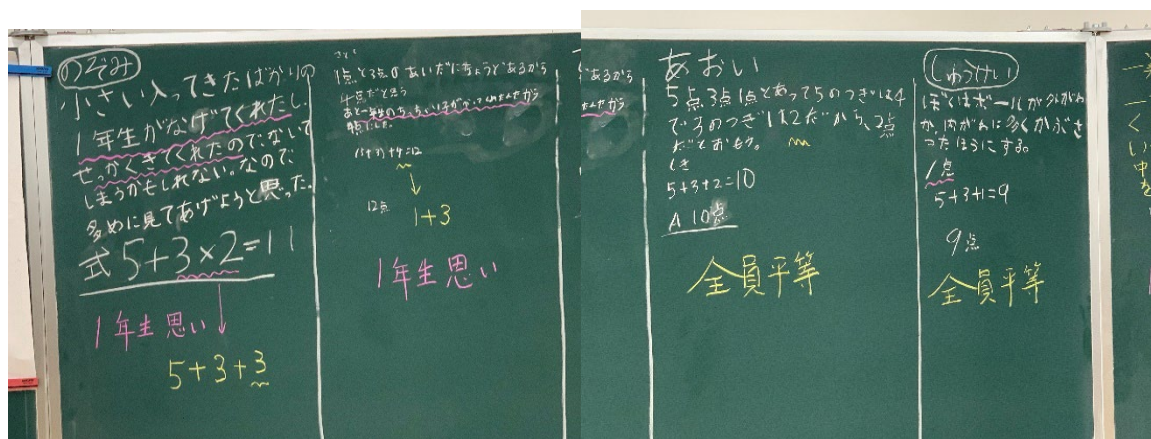 のぞみ
小さい入ってきたばかりの
1年生がなげてくれたし、
せっかくきてくれたのでないて
しまうかもしれない。なので
多めに見てあげようと思った。
式 5+3×2=11
1年生思い
5+3+3
さとし
1点と3点の あいだにちょうどあるから
4点だと思う
(5+3)+4=12
12点
1+3
1年生思い
あるから
あおい
5点3点1点とあって5のつぎは4
で3のつぎは2だから、2点
だとおもう。
しき
5+3+2=10
A 10点
全員平等
しゅうけい
ぼくはボールが外がわ
か、内がわに多くかぶさ
ったほうにする。
1点
5+3+1=9
9点
全員平等